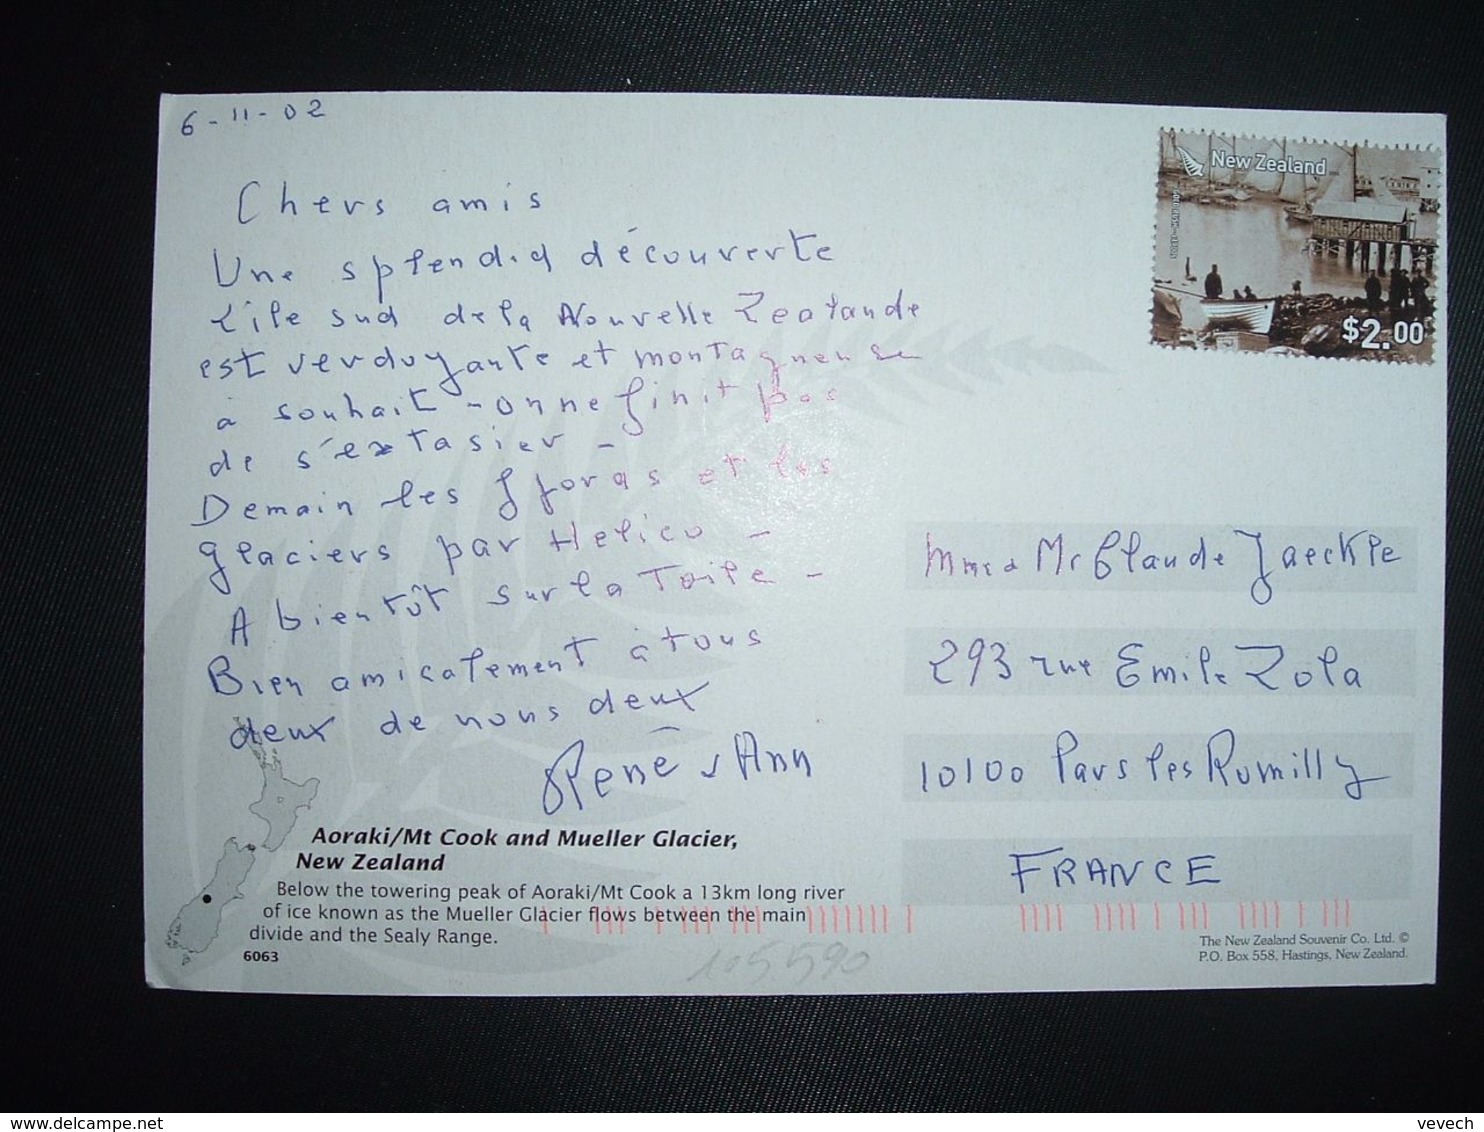 6-11-02
Chers amis
Une splendid découverte
L'île sud de la Nouvelle Zealande
est verdoyante et montagneuse
à souhait - on ne finit pas
de s'extasier -
Demain les fjords et les
glaciers par Helico -
A bientôt sur la Toile -
Bien amicalement à tous
deux de nous deux
René & Ann
New Zealand
$2.00
Mme & Mr Claude Jaeckle
293 rue Emile Zola
10100 Pars les Romilly
FRANCE
Aoraki/Mt Cook and Mueller Glacier,
New Zealand
Below the towering peak of Aoraki/Mt Cook a 13km long river
of ice known as the Mueller Glacier flows between the main
divide and the Sealy Range.
6063
The New Zealand Souvenir Co. Ltd. ©
P.O. Box 558, Hastings, New Zealand.
105590
vevech